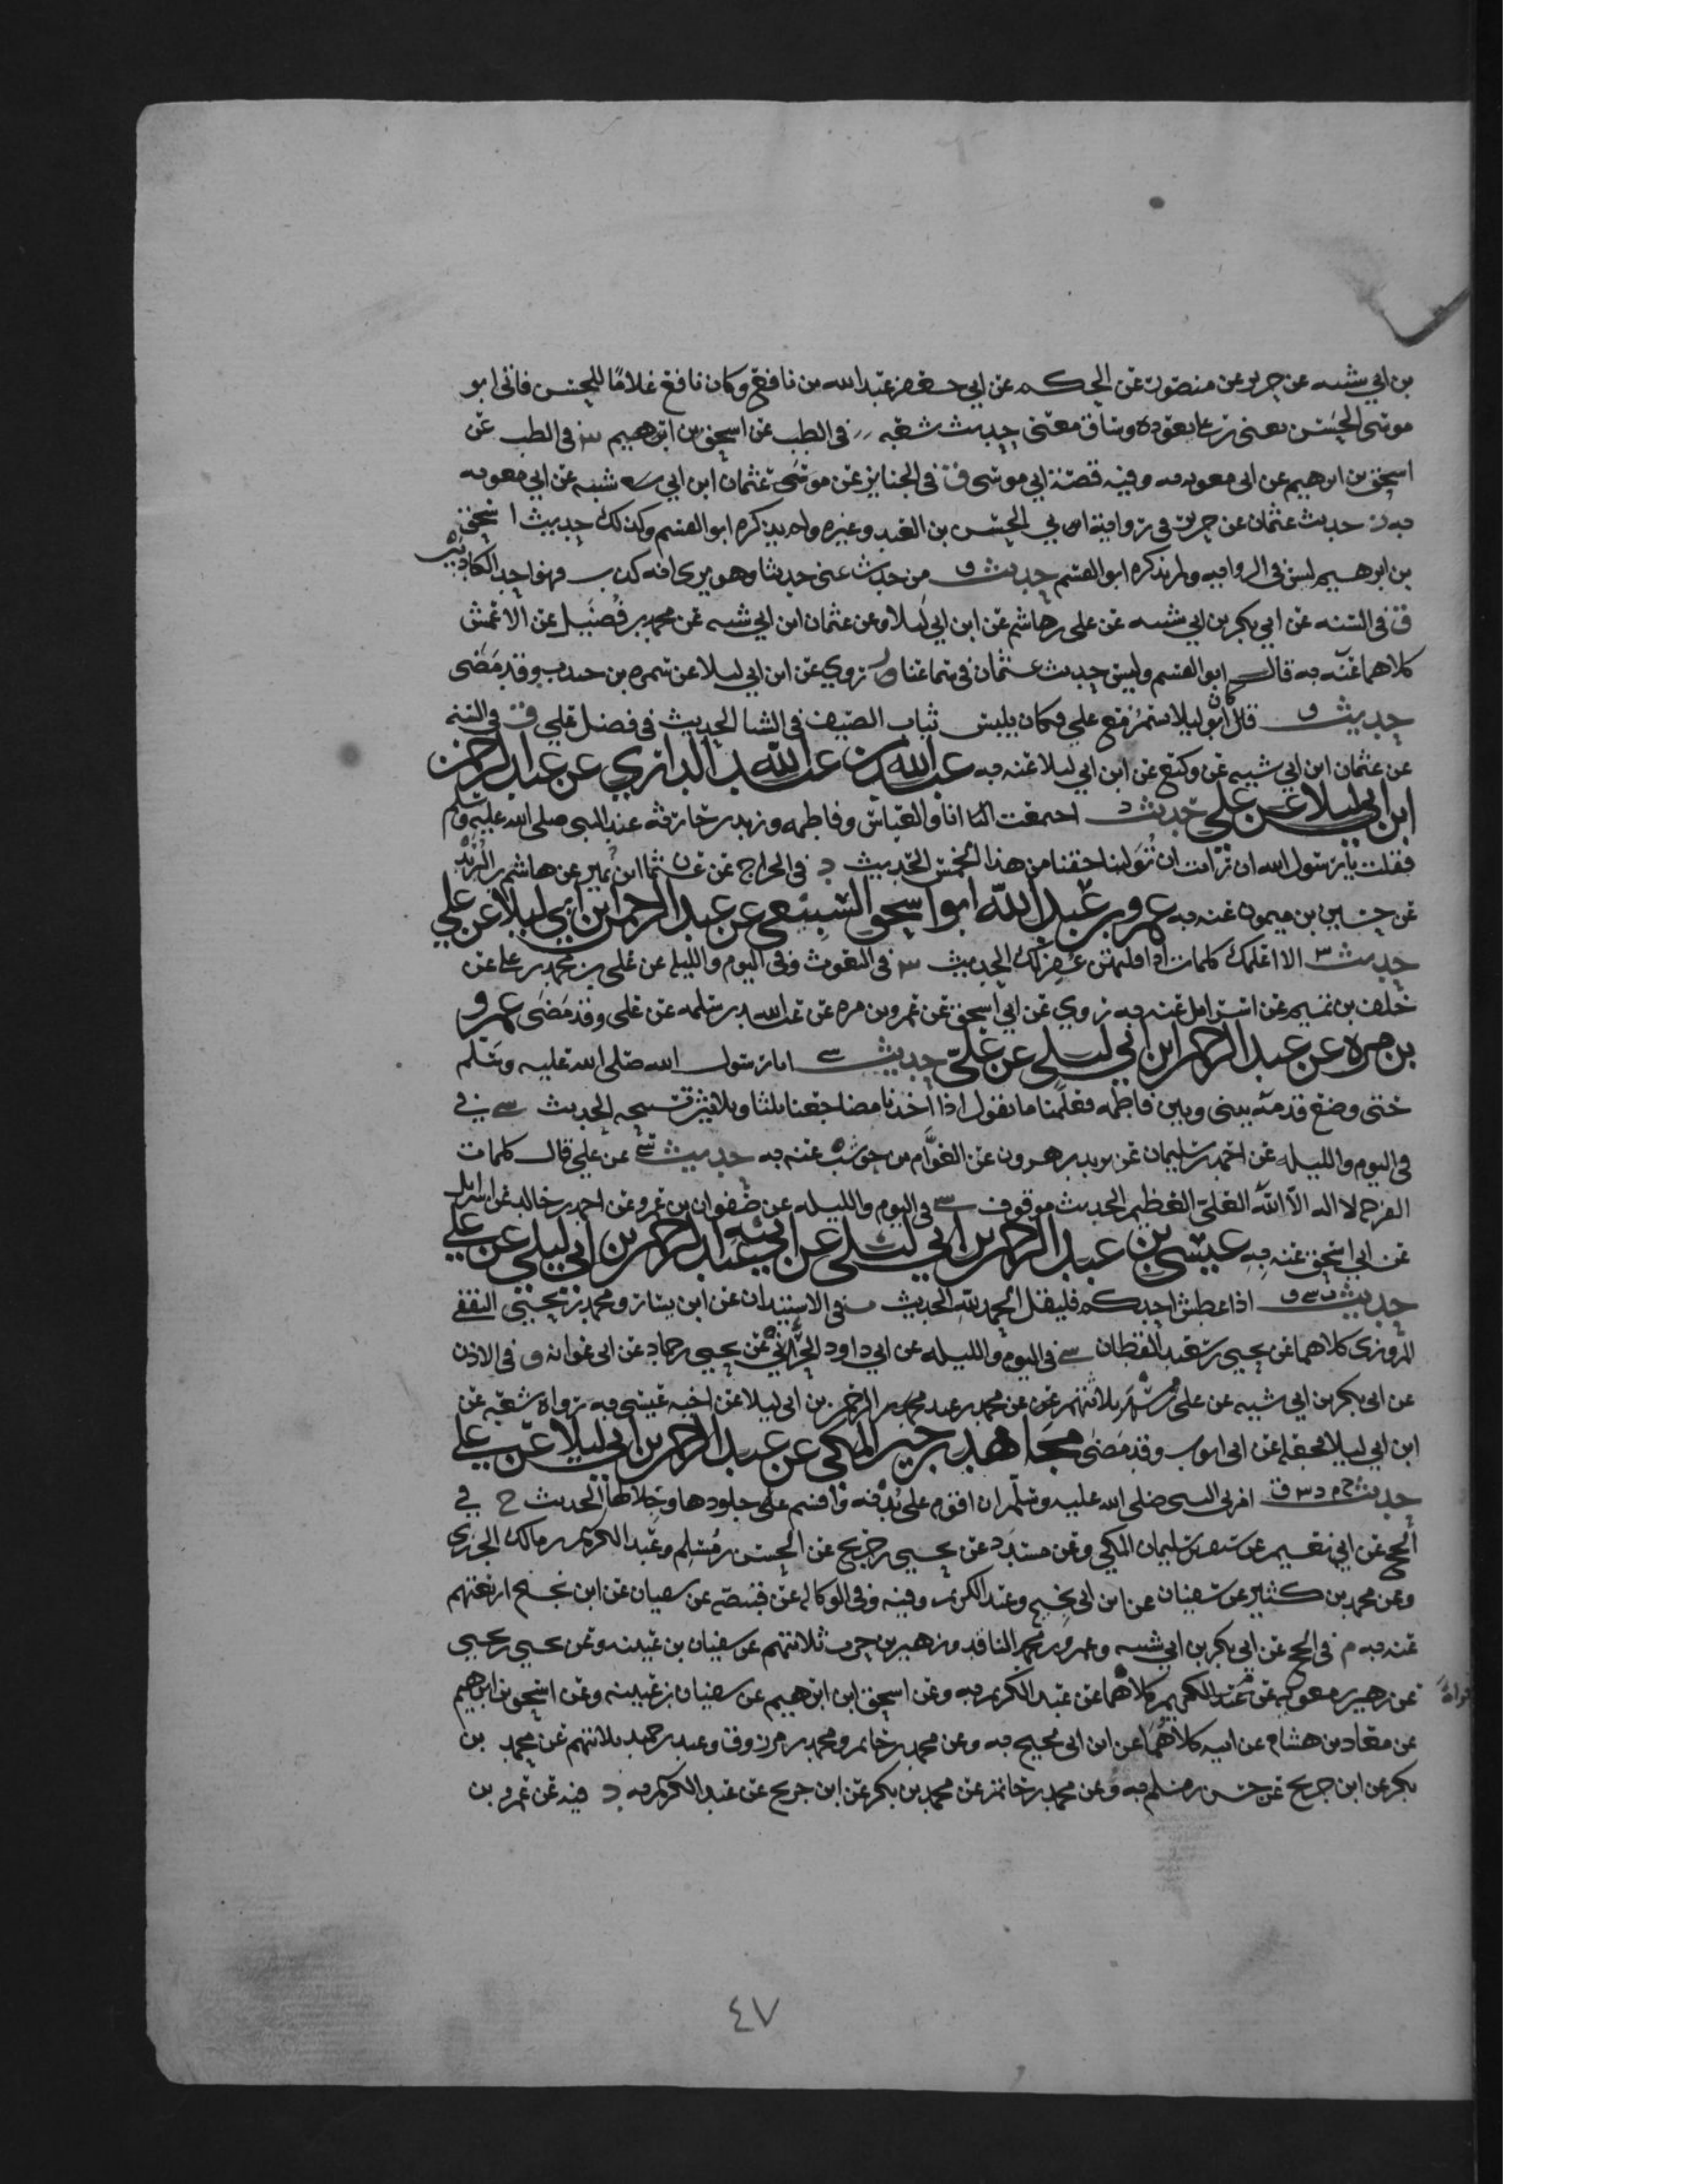 بن ابي شيبه عن جرير عن منصور عن الحكم عن ابي جعفر عبد الله بن نافع وكان نافع غلاما للحسن فاتى ابو
موسى الحسن يعنى بن علي يعوده وساق معنى حديث شعبه في الطب عن اسحق بن ابرهيم س في الطب عن
اسحق بن ابرهيم عن ابى معويه به وفيه قصة ابي موسى ق في الجنايز عن عثمان ابن ابي شيبه عن ابي معويه
به حديث عثمان عن جرير في رواية ابي الحسن بن العبد وغيره ولم يذكره ابو القسم وكذلك حديث اسحق
بن ابرهيم ليس في الروايه ولم يذكره ابو القسم حديث ق من حدث عنى حديثا وهو يرى انه كذب فهو احد الكاذبين
ق في السنه عن ابي بكر بن ابي شيبه عن على بن هاشم عن ابن ابي ليلا وعن عثمان ابن ابي شيبه عن محمد بن فضيل عن الاعمش
كلاهما عنه به قال ابو القسم وليس حديث عثمان في سماعنا وروي عن ابن ابي ليلا عن سمره بن جندب وقد مضى
حديث ق كان ابو ليلا يسمر مع علي فكان يلبس ثياب الصيف في الشتا الحديث في فضل علي ق في السنه
عن عثمان ابن ابي شيبه عن وكيع عن ابن ابي ليلا عنه به عبد الله بن عبد الله الرازي عن عبد الرحمن
ابن ابي ليلا عن علي حديث د اجتمعت انا والعباس وفاطمه وزيد بن حارثه عند النبى صلى الله عليه وسلم
فقلت يا رسول الله ان رأيت ان تولينا حقنا من هذا الخمس الحديث د في الخراج عن عثمان ابن ابي شيبه عن ابن نمير عن هاشم بن البريد
عن حسين بن ميمون عنه به عمرو بن عبد الله ابو اسحق السبيعي عن عبد الرحمن ابن ابي ليلا عن علي
حديث س الا اعلمك كلمات اذا قلتهن غفر لك الحديث س في النعوت وفي اليوم والليله عن علي بن محمد بن علي عن
خلف بن تميم عن اسرائيل عنه به روي عن ابي اسحق عن عمرو بن مره عن عبد الله بن سلمه عن علي وقد مضى عمرو
بن مره عن عبد الرحمن ابن ابي ليلى عن علي حديث سي اتانا رسول الله صلى الله عليه وسلم
حتى وضع قدمه بينى وبين فاطمه فعلمنا ما نقول اذا اخذنا مضاجعنا ثلثا وثلاثين تسبيحه الحديث سي في
في اليوم والليله عن احمد بن سليمان عن يزيد بن هرون عن العوام بن حوشب عنه به حديث سي عن علي قال كلمات
الفرج لا اله الا الله العلي العظيم الحديث موقوف سي في اليوم والليله عن صفوان بن عمرو عن احمد بن خالد عن اسرائيل
عن ابي اسحق عنه به عيسى بن عبد الرحمن بن ابي ليلى عن ابيه عبد الرحمن بن ابي ليلى عن علي
حديث ت سي ق اذا عطس احدكم فليقل الحمد لله الحديث ت في الاستيذان عن ابن بشار ومحمد بن يحيى الثقفي
المروزى كلاهما عن يحيى بن سعيد القطان سي في اليوم والليله عن ابي داود الحراني عن يحيى بن حماد عن ابى عوانه ق في الادب
عن ابى بكر بن ابي شيبه عن على بن مسهر ثلاثتهم عن محمد بن عبد الرحمن بن ابي ليلا عن اخيه عيسى به رواه شعبه عن
ابن ابي ليلا فجعله عن ابى ايوب وقد مضى مجاهد بن جبر المكي عن عبد الرحمن بن ابي ليلا عن علي
حديث خ م د س ق امرنى النبى صلى الله عليه وسلم ان اقوم على بدنه واقسم على جلودها وجلالها الحديث خ في
الحج عن ابي نعيم عن سيف بن سليمان المكي وعن مسدد عن يحيى عن ابن جريج عن الحسن بن مسلم وعبد الكريم بن مالك الجزرى
وعن محمد بن كثير عن سفيان عن ابن ابي نجيح وعبد الكريم وفيه وفي الوكاله عن قبيصه عن سفيان عن ابن نجيح اربعتهم
عنه به م في الحج عن ابي بكر بن ابي شيبه وعمرو بن محمد الناقد وزهير بن حرب ثلاثتهم عن سفيان بن عيينه وعن يحيى بن يحيى
عن زهير بن معويه عن عبد الكريم كلاهما عن عبد الكريم به وعن اسحق ابن ابرهيم عن سفيان بن عيينه وعن اسحق بن ابرهيم
عن معاذ بن هشام عن ابيه كلاهما عن ابن ابي نجيح به وعن محمد بن حاتم ومحمد بن مرزوق وعبد بن حميد ثلاثتهم عن محمد بن
بكر عن ابن جريج عن حسن بن مسلم به وعن محمد بن حاتم عن محمد بن بكر عن ابن جريج عن عبد الكريم به د فيه عن عمرو بن
٤٧